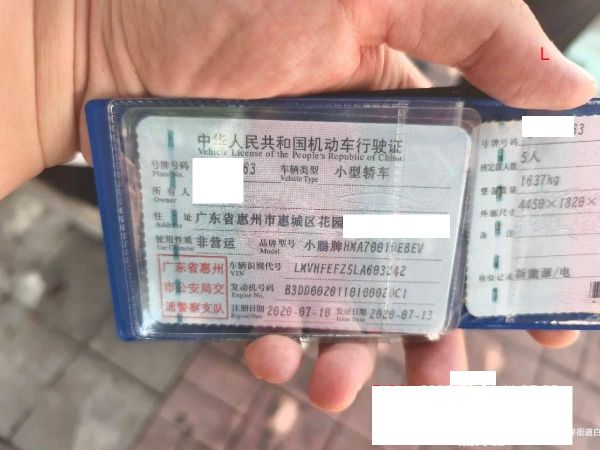 L
中华人民共和国机动车行驶证
Vehicle License of the People's Republic of China
号牌号码 63 车辆类型 小型轿车
Plate No. Vehicle Type
所有人
Owner
住址 广东省惠州市惠城区花园
Address
使用性质 非营运 品牌型号 小鹏牌HMA7001
Use Character Model
广东省惠州
市公安局交
通警察支队
车辆识别代号
VIN
发动机号码
Engine No.
注册日期 2020-07-10 发证日期 2020-07-13
Register Date Issue Date
号牌号码 63
核定载人数 5人
整备质量 1637kg
外廓尺寸 4450×1820×
检验记录 新能源/电
街道白